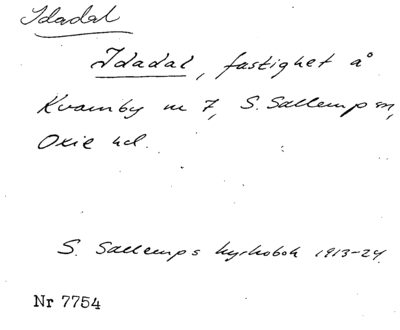 Idadal
Idadal, fastighet å
Kvarnby nr 7, S. Sallerup sn,
Oxie hd.
S. Sallerups kyrkobok 1913-24.
Nr 7754